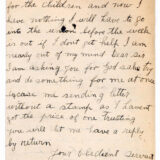 for the children and now I
have nothing I will have to go
into the union before the week
is out if I dont get help I am
nearly out of my mind dear sir
I am asking you for god sake try
and do something for me at once
excuse me sending letter
without a stamp as I havent
got the price of one trusting
you will let me have a reply
by return
your obedient Servant